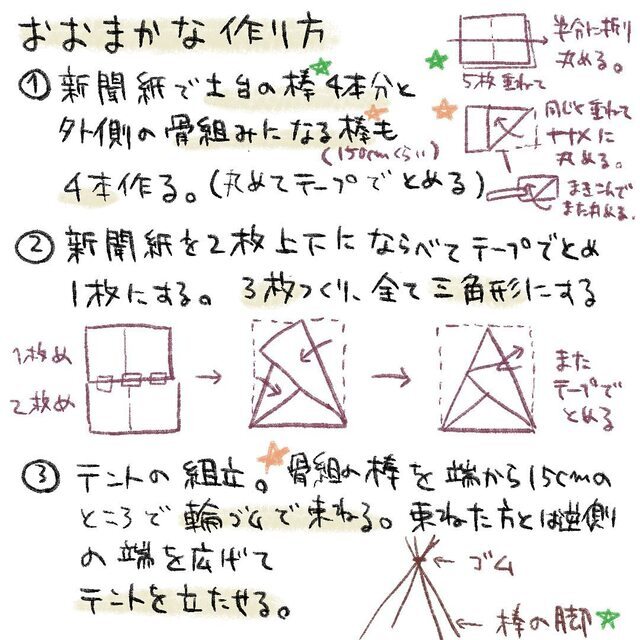 おおまかな作り方
① 新聞紙で土台の棒4本分と
外側の骨組みになる棒も
(150cmくらい)
4本作る。(丸めてテープでとめる)
半分に折り
丸める。
5枚重ねて
同じく重ねて
ナナメに
丸める。
まきこんで
また丸める。
② 新聞紙を2枚上下にならべてテープでとめ
1枚にする。3枚つくり、全て三角形にする
1枚め
2枚め
また
テープで
とめる
③ テントの組立。骨組の棒を端から15cmの
ところで輪ゴムで束ねる。束ねた方とは逆側
の端を広げて
テントを立たせる。
ゴム
棒の脚